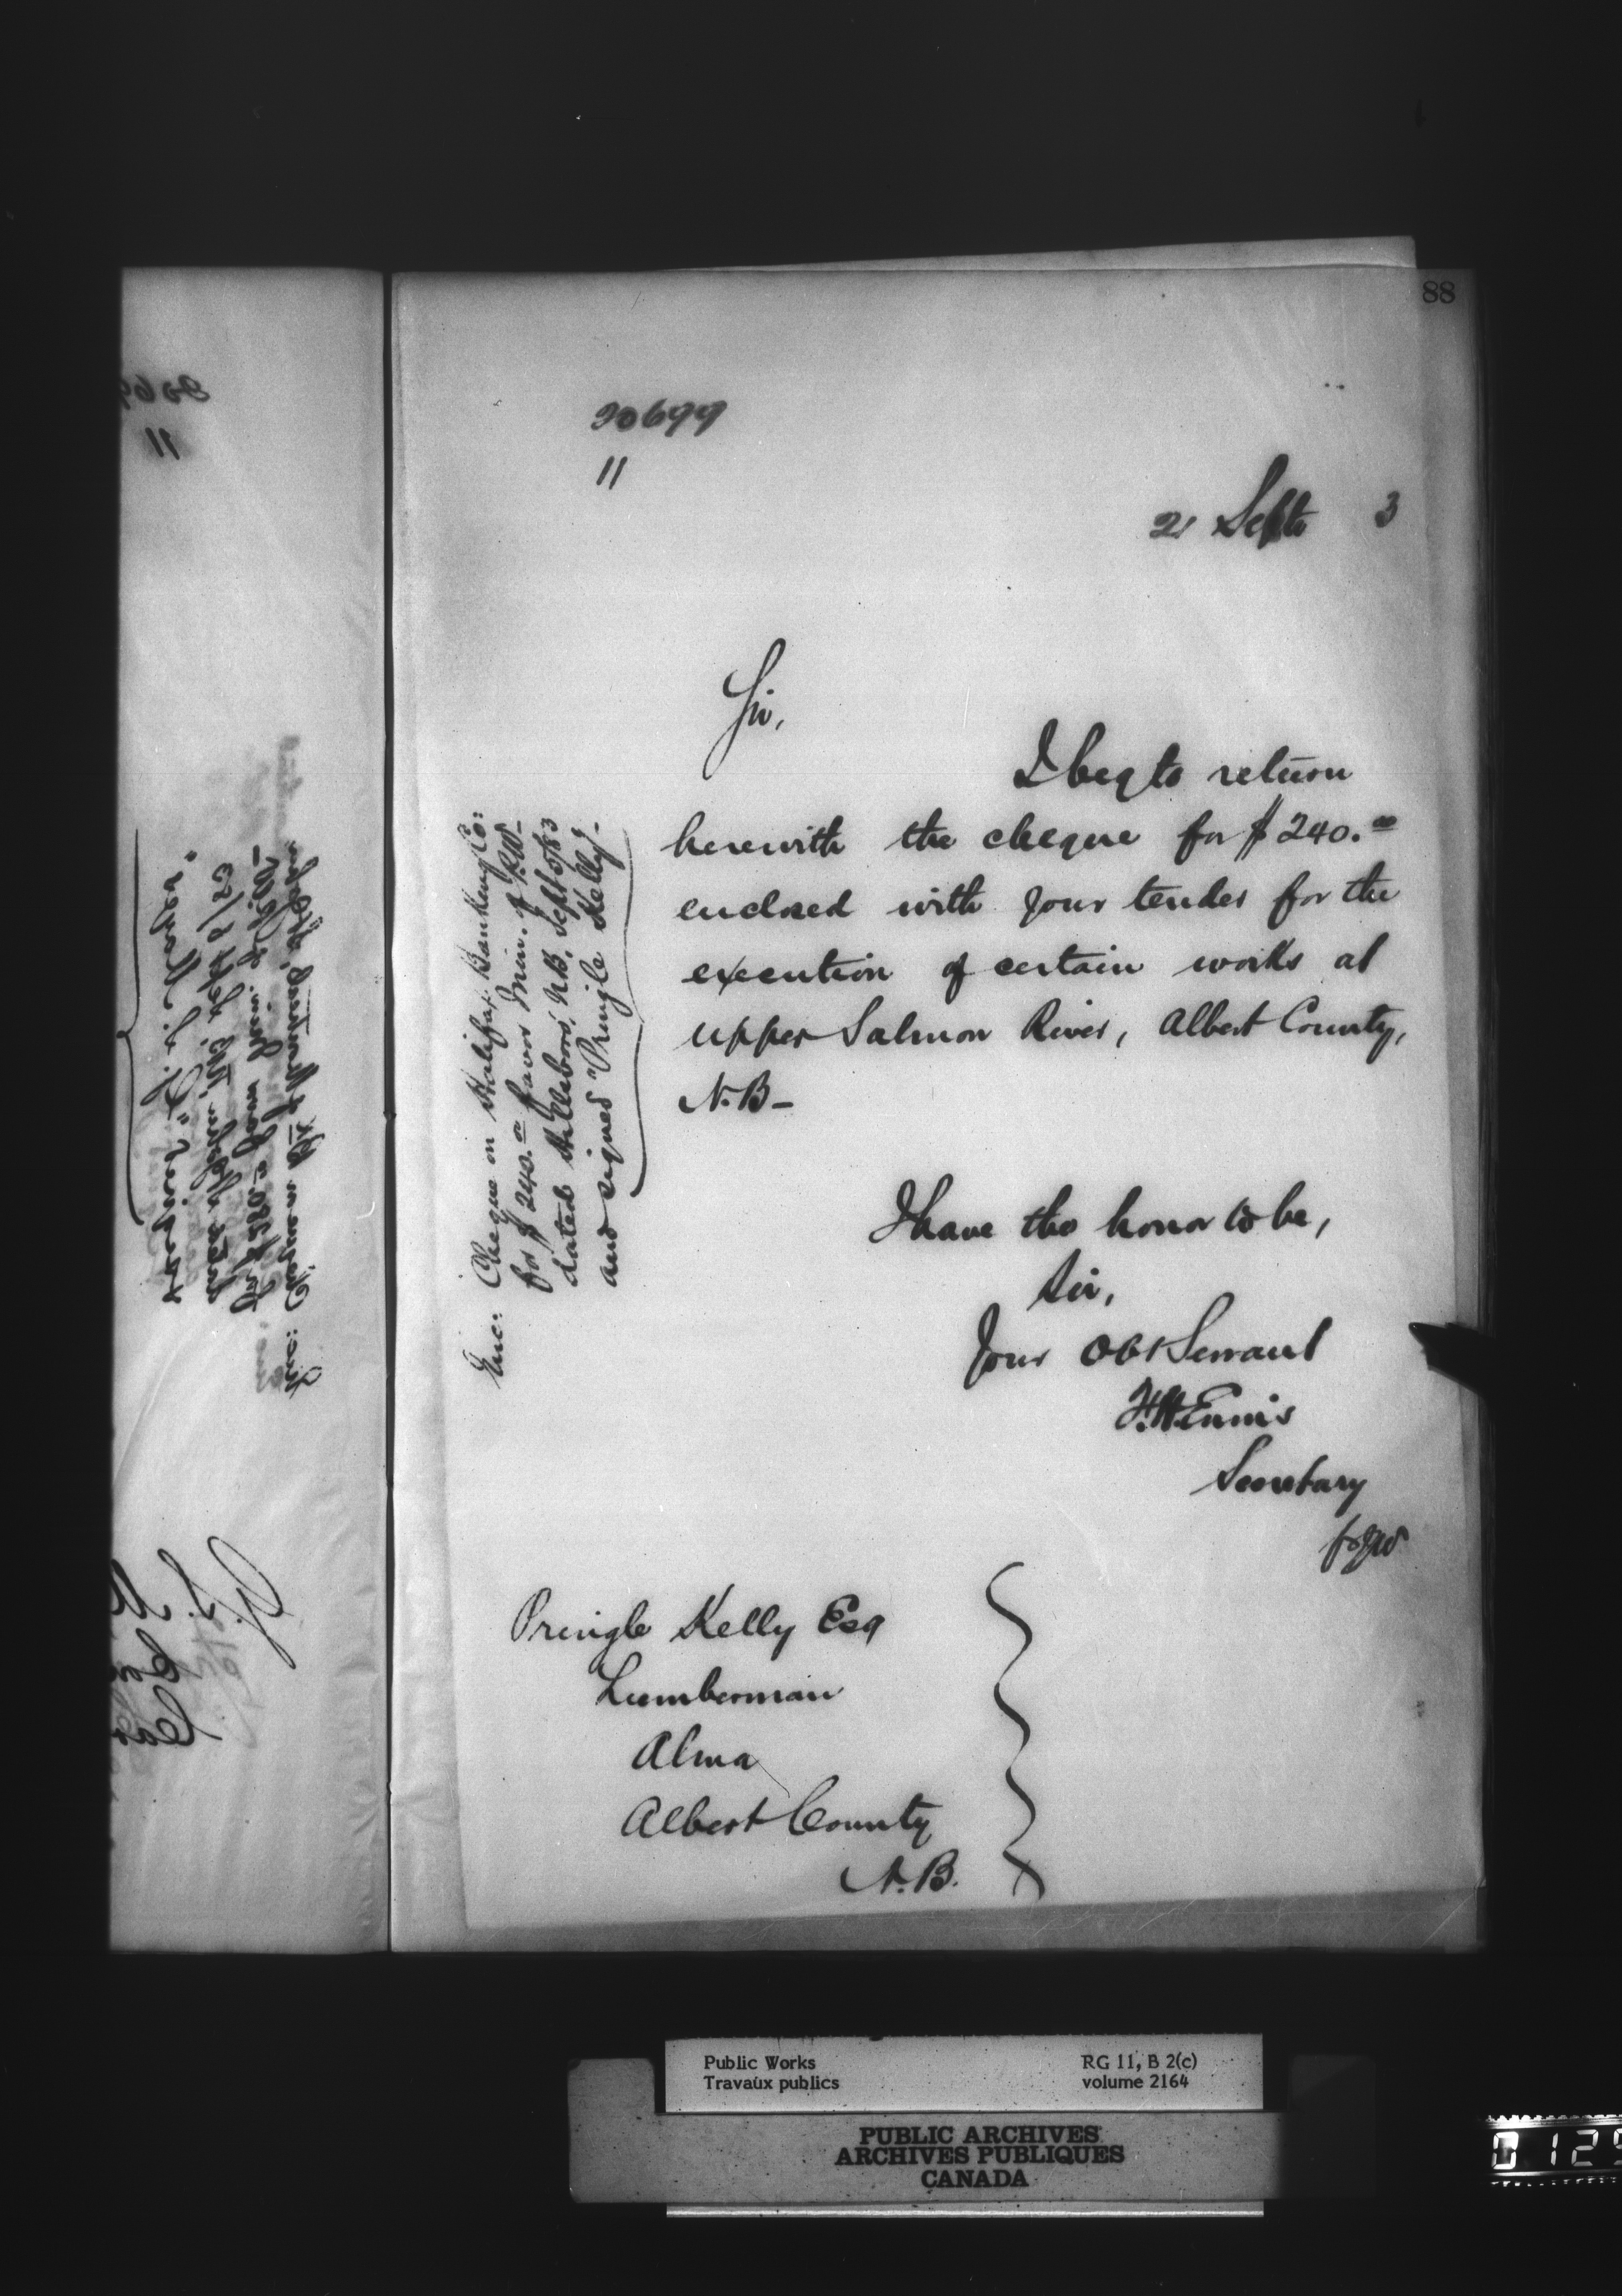 88
20699
11
21 Septr 3
Sir,
I beg to return
herewith the cheque for $240.00
enclosed with your tender for the
execution of certain works at
Upper Salmon River, Albert County,
N.B—
Enc: Cheque on Halifax Banking Co:
for $240.00 favor Min. of P.W—
dated Hillsboro', N.B. Sept 5/83
and signed "Pringle Kelly".
I have the honor to be,
Sir,
Your Obt Servant
F.H. Ennis
Secretary
Pringle Kelly Esq
Lumberman
Alma
Albert County
N.B.
Public Works
Travaux publics
RG 11, B 2(c)
volume 2164
PUBLIC ARCHIVES
ARCHIVES PUBLIQUES
CANADA
0129